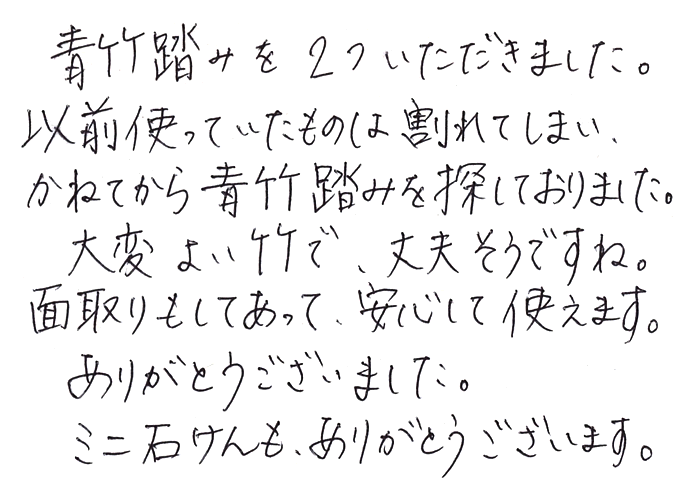 青竹踏みを2ついただきました。
以前使っていたものは割れてしまい、
かねてから青竹踏みを探しておりました。
大変よい竹で、丈夫そうですね。
面取りもしてあって、安心して使えます。
ありがとうございました。
ミニ石けんも、ありがとうございます。